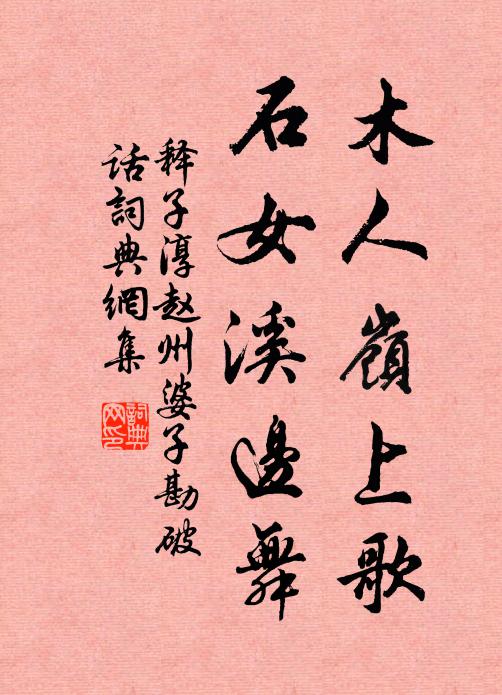 木人嶺上歌
石女溪邊舞
释子淳赵州婆子勘破
话詞典網集
詞典网印